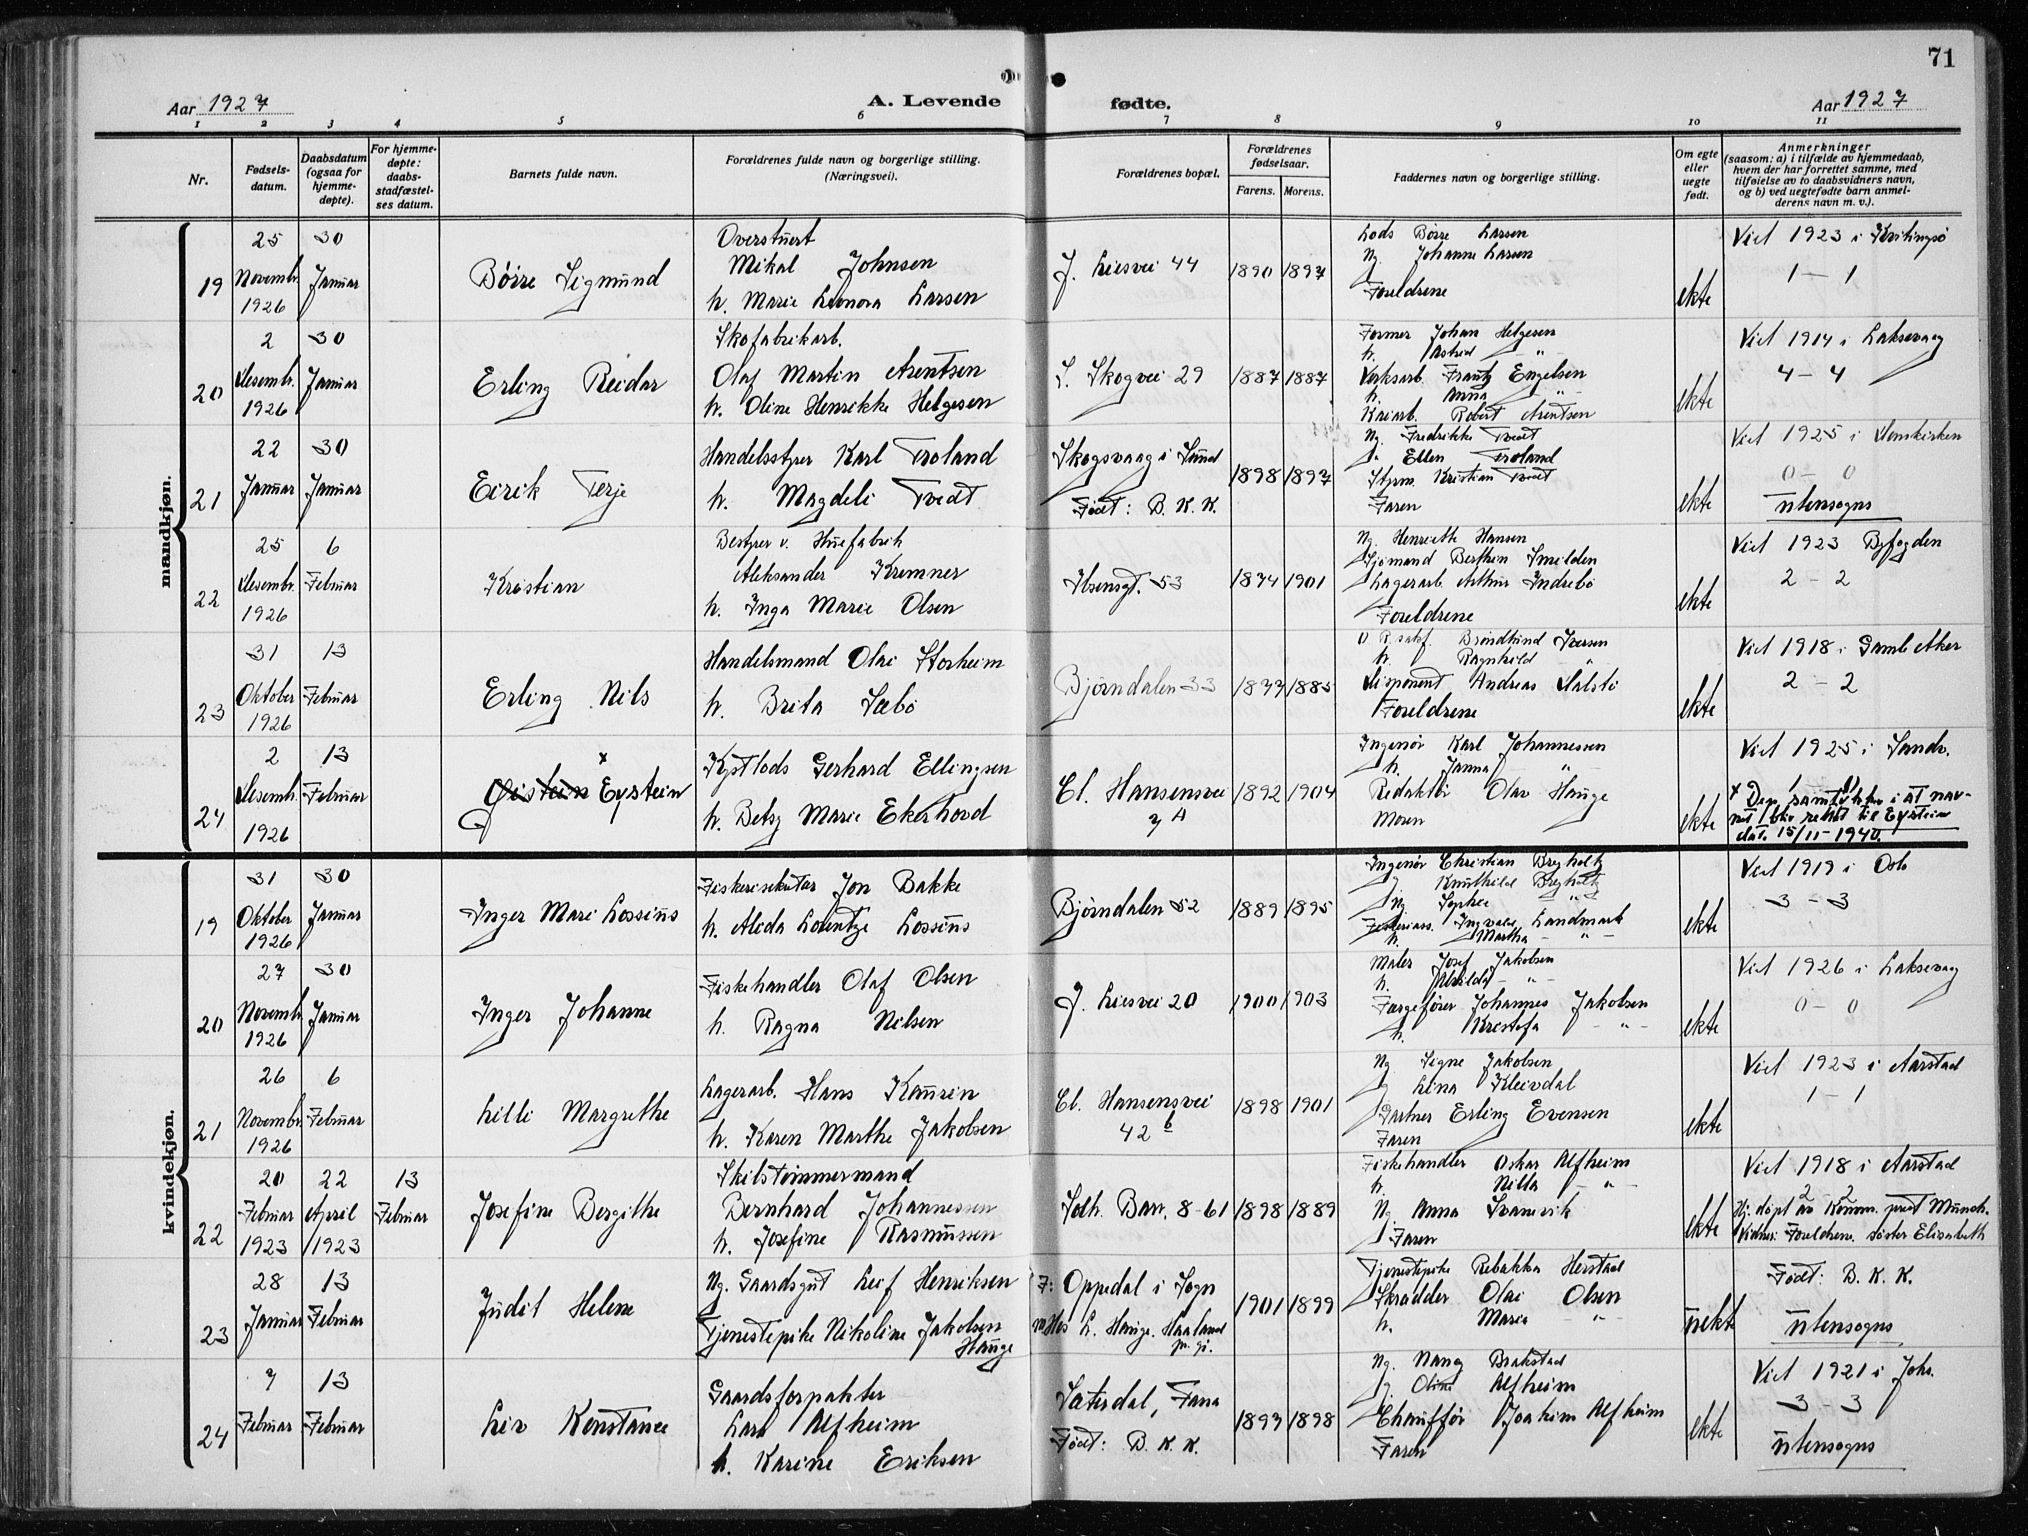 71
Aar 1927
A. Levende fødte.
Aar 1927
1 2 3 4 5 6 7 8 9 10 11
Nr.
Fødsels-
datum.
Daabsdatum
(ogsaa for
hjemme-
døpte).
For hjemme-
døpte:
daabs-
stadfæstel-
ses datum.
Barnets fulde navn.
Forældrenes fulde navn og borgerlige stilling.
(Næringsvei).
Forældrenes bopæl.
Forældrenes
fødselsaar.
Farens. Morens.
Faddernes navn og borgerlige stilling.
Om egte
eller
uegte
født.
Anmerkninger
(saasom: a) i tilfælde av hjemmedaab,
hvem der har forrettet samme, med
tilføielse av to daabsvidners navn,
og b) ved uegtefødte barn anmel-
derens navn m. v.).
mandkjøn.
19
25
Novembr.
1926
30
Januar
Børre Sigmund
Overstuert
Mikal Johnsen
h. Marie Leonora Larsen
J. Liesvei 44
1890 1897
Lods Børre Larsen
Ng. Johanne Larsen
Foreldrene
ekte
Viet 1923 i
1 - 1
20
2
Desembr.
1926
30
Januar
Erling Reidar
Skofabrikarb.
Olaf Martin Arentsen
h. Oline Henrikke Helgesen
S. Skogvei 29
1887 1887
Former Johan Helgesen
h. Astrid - " -
Verksarb. Frantz Engelsen
h. Anna - " -
Robert Arentsen
ekte
Viet 1914 i Laksevaag
4 - 4
21
22
Januar
30
Januar
Eirik Terje
Handelsstyrer Karl Troland
h. Magdeli Tvedt
Skogsvaag i Sund
Født: B. K. K.
1898 1897
Ng. Fredrikke Tvedt
Ellen Troland
Styrm. Kristian Tvedt
Faren
ekte
Viet 1925 i Domkirken
0 - 0
utensogns
22
25
Desembr.
1926
6
Februar
Kristian
Bestyrer v. Huefabrik
Aleksander Kremner
h. Inga Marie Olsen
Ibsensgt. 53
1874 1901
Ng. Henriette Hansen
Sjømand Berthin Smilden
Lagerarb. Arthur Indrebø
Foreldrene
ekte
Viet 1923 Byfogden
2 - 2
23
31
Oktober
1926
13
Februar
Erling Nils
Handelsmand Olai Storheim
h. Brita Sæbø
Bjørndalen 33
1877 1885
Iversen
h. Ragnhild "
Disponent Andreas
Foreldrene
ekte
Viet 1918 i Gaml. Aker
2 - 2
24
2
Desembr.
1926
13
Februar
Øistein x Eystein
Kystlods Gerhard Ellingsen
h. Betsy Marie Ekerhovd
Cl. Hansensvei
7 A
1892 1904
Ingeniør Karl Johannessen
h. Janna - " -
Redaktør Olav Hauge
Moren
ekte
Viet 1925 i Sandv.
x Dep. samtykker i at nav-
net blir rettet til Eystein
dat. 15/11-1940.
kvindekjøn.
19
31
Oktober
1926
30
Januar
Inger Mari Lossius
Fiskerisekretær Jon Bakke
h. Aleda Lorentze Lossius
Bjørndalen 52
1889 1895
Ingeniør Christian Breyholtz
Knuthild Breyholtz
Ng Sophie - " -
Fiskeriass. Ingvald Landmark
h. Martha - " -
ekte
Viet 1919 i Oslo
3 - 3
20
27
Novembr.
1926
30
Januar
Inger Johanne
Fiskehandler Olaf Olsen
h. Ragna Nilsen
J. Liesvei 20
1900 1903
Maler Josef Jakobsen
h. - " -
Færgefører Johannes Jakobsen
h. Kristofa - " -
ekte
Viet 1926 i Laksevaag
0 - 0
21
26
Novembr.
1926
6
Februar
Lilli Margrethe
Lagerarb. Hans Kaurin
h. Karen Marthe Jakobsen
Cl. Hansensvei
42 b
1898 1901
Ng. Signe Jakobsen
J. Lina Kleivdal
Gartner Erling Evensen
Faren
ekte
Viet 1923 i Aarstad
1 - 1
22
20
Februar
1923
22
April
1923
13
Februar
Josefine Bergithe
Skibstømmermand
Bernhard Johannessen
h. Josefine Rasmussen
Solh. Barr. 8-61
1898 1889
Fiskehandler Oskar Alfheim
h. Nilla - " -
Ng. Anna Svanevik
Faren
ekte
Viet 1918 i Aarstad
2 2
Hj. døpt av Komm. prest Munch.
Vidner: Foreldrene. søster Elisabeth
23
28
Januar
13
Februar
Judit Helene
Ng. Gaardsgut Leif Henriksen
Tjenestepike Nikoline Jakobsen
Hauge
F: Oppedal i Sogn
M Hos L. Hauge. Haaland
1901 1899
Tjenestepike Rebakka Herstad
Skrædder Olai Olsen
h. Marie - " -
uekte
Født: B. K. K.
utensogns
24
7
Februar
13
Februar
Liv Konstance
Gaardsforpakter
Lars Alfheim
h. Karine Eriksen
Sætersdal, Fana
Født: B. K. K.
1893 1898
Ng. Nancy Brakstad
J. Oline Alfheim
Chauffør Joakim Alfheim
Faren
ekte
Viet 1921 i Joha.
3 - 3
utensogns